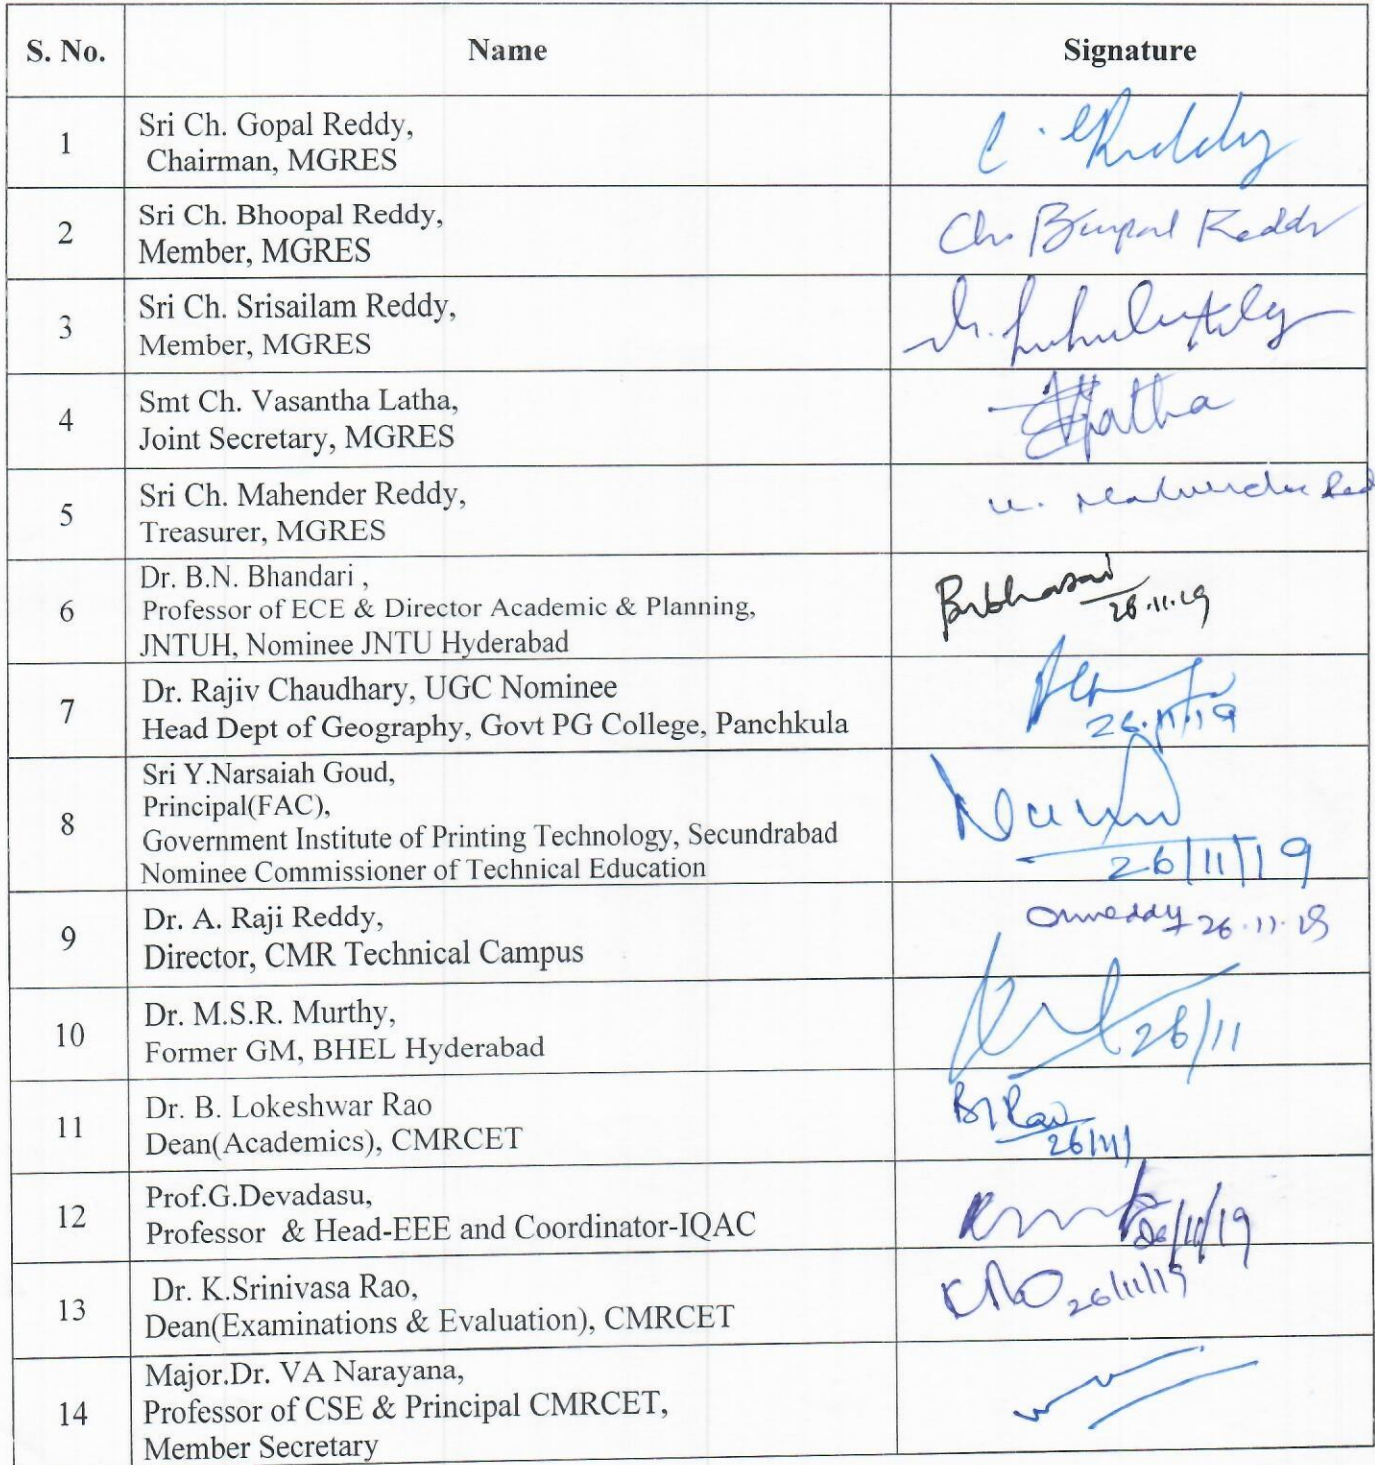 S. No. Name Signature
1 Sri Ch. Gopal Reddy,
Chairman, MGRES
2 Sri Ch. Bhoopal Reddy,
Member, MGRES
Reddy
3 Sri Ch. Srisailam Reddy,
Member, MGRES
4 Smt Ch. Vasantha Latha,
Joint Secretary, MGRES
5 Sri Ch. Mahender Reddy,
Treasurer, MGRES
6 Dr. B.N. Bhandari ,
Professor of ECE & Director Academic & Planning,
JNTUH, Nominee JNTU Hyderabad
26.11.19
7 Dr. Rajiv Chaudhary, UGC Nominee
Head Dept of Geography, Govt PG College, Panchkula
26.11.19
8 Sri Y.Narsaiah Goud,
Principal(FAC),
Government Institute of Printing Technology, Secundrabad
Nominee Commissioner of Technical Education
26/11/19
9 Dr. A. Raji Reddy,
Director, CMR Technical Campus
26.11.19
10 Dr. M.S.R. Murthy,
Former GM, BHEL Hyderabad
26/11
11 Dr. B. Lokeshwar Rao
Dean(Academics), CMRCET
26/11/
12 Prof.G.Devadasu,
Professor & Head-EEE and Coordinator-IQAC
26/11/19
13 Dr. K.Srinivasa Rao,
Dean(Examinations & Evaluation), CMRCET
26/11/19
14 Major.Dr. VA Narayana,
Professor of CSE & Principal CMRCET,
Member Secretary